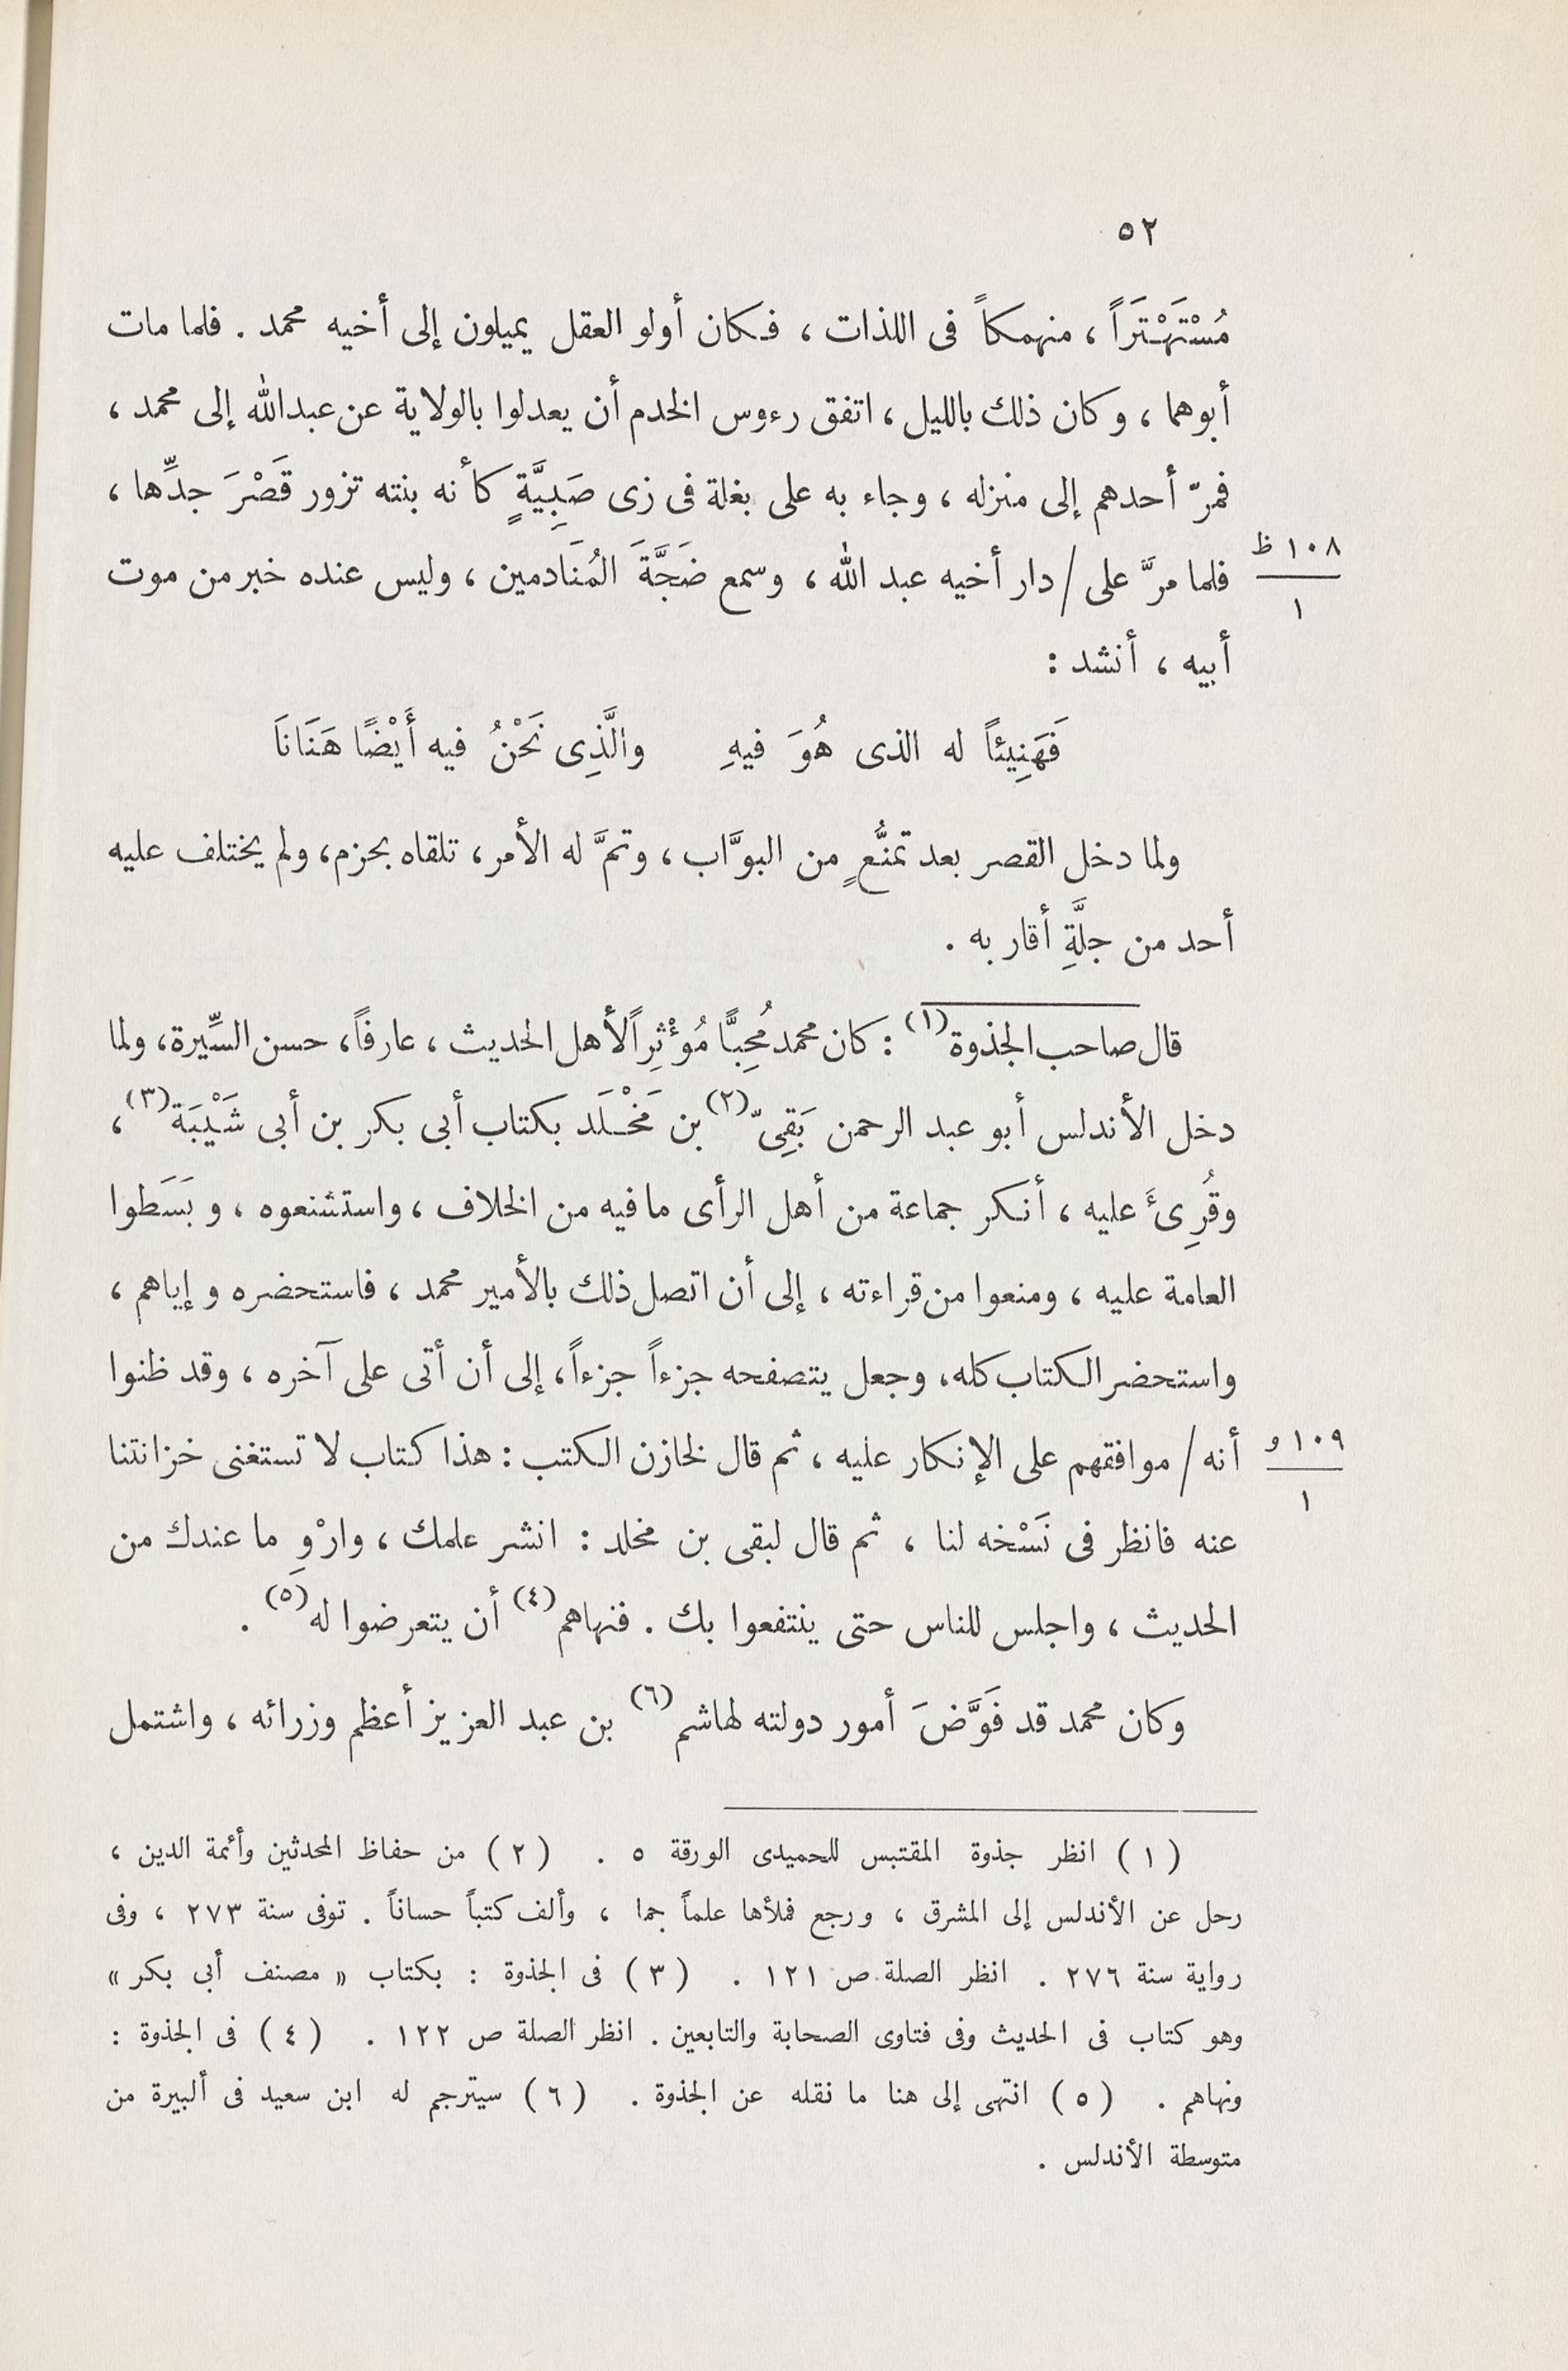 ٥٢
مُسْتَهْتَرَاً ، منهمكاً فى اللذات ، فكان أولو العقل يميلون إلى أخيه محمد . فلما مات
أبوهما ، وكان ذلك بالليل ، اتفق رءوس الخدم أن يعدلوا بالولاية عن عبدالله إلى محمد ،
فمرّ أحدهم إلى منزله ، وجاء به على بغلة فى زى صَبِيَّةٍ كأنه بنته تزور قَصْرَ جدِّها ،
١٠٨ ظ
١
فلما مرَّ على / دار أخيه عبد الله ، وسمع ضَجَّةَ المُنَادمين ، وليس عنده خبر من موت
أبيه ، أنشد :
فَهَنِيئاً له الذى هُوَ فيهِ والَّذِى نَحْنُ فيه أَيْضًا هَنَانَا
ولما دخل القصر بعد تمنُّعٍ من البوَّاب ، وتمَّ له الأمر ، تلقاه بحزم ، ولم يختلف عليه
أحد من جلَّةِ أقاربه .
قال صاحب الجذوة (١) : كان محمد مُحِبًّا مُؤْثِراً لأهل الحديث ، عارفاً ، حسن السِّيرة ، ولما
دخل الأندلس أبو عبد الرحمن بَقِىّ (٢) بن مَخْلَد بكتاب أبى بكر بن أبى شَيْبَة (٣) ،
وقُرِئَ عليه ، أنكر جماعة من أهل الرأى ما فيه من الخلاف ، واستشنعوه ، وبَسَطوا
العامة عليه ، ومنعوا من قراءته ، إلى أن اتصل ذلك بالأمير محمد ، فاستحضره وإياهم ،
واستحضر الكتاب كله ، وجعل يتصفحه جزءاً جزءاً ، إلى أن أتى على آخره ، وقد ظنوا
١٠٩ و
١
أنه / موافقهم على الإنكار عليه ، ثم قال لخازن الكتب : هذا كتاب لا تستغنى خزانتنا
عنه فانظر فى نَسْخه لنا ، ثم قال لبقى بن مخلد : انشر علمك ، وارْوِ ما عندك من
الحديث ، واجلس للناس حتى ينتفعوا بك . فنهاهم (٤) أن يتعرضوا له (٥) .
وكان محمد قد فَوَّضَ أمور دولته لهاشم (٦) بن عبد العزيز أعظم وزرائه ، واشتمل
( ١ ) انظر جذوة المقتبس للحميدى الورقة ٥ . ( ٢ ) من حفاظ المحدثين وأئمة الدين ،
رحل عن الأندلس إلى المشرق ، ورجع فملأها علماً جما ، وألف كتباً حساناً . توفى سنة ٢٧٣ ، وفى
رواية سنة ٢٧٦ . انظر الصلة ص ١٢١ . ( ٣ ) فى الجذوة : بكتاب « مصنف أبى بكر »
وهو كتاب فى الحديث وفى فتاوى الصحابة والتابعين . انظر الصلة ص ١٢٢ . ( ٤ ) فى الجذوة :
ونهاهم . ( ٥ ) انتهى إلى هنا ما نقله عن الجذوة . ( ٦ ) سيترجم له ابن سعيد فى ألبيرة من
متوسطة الأندلس .